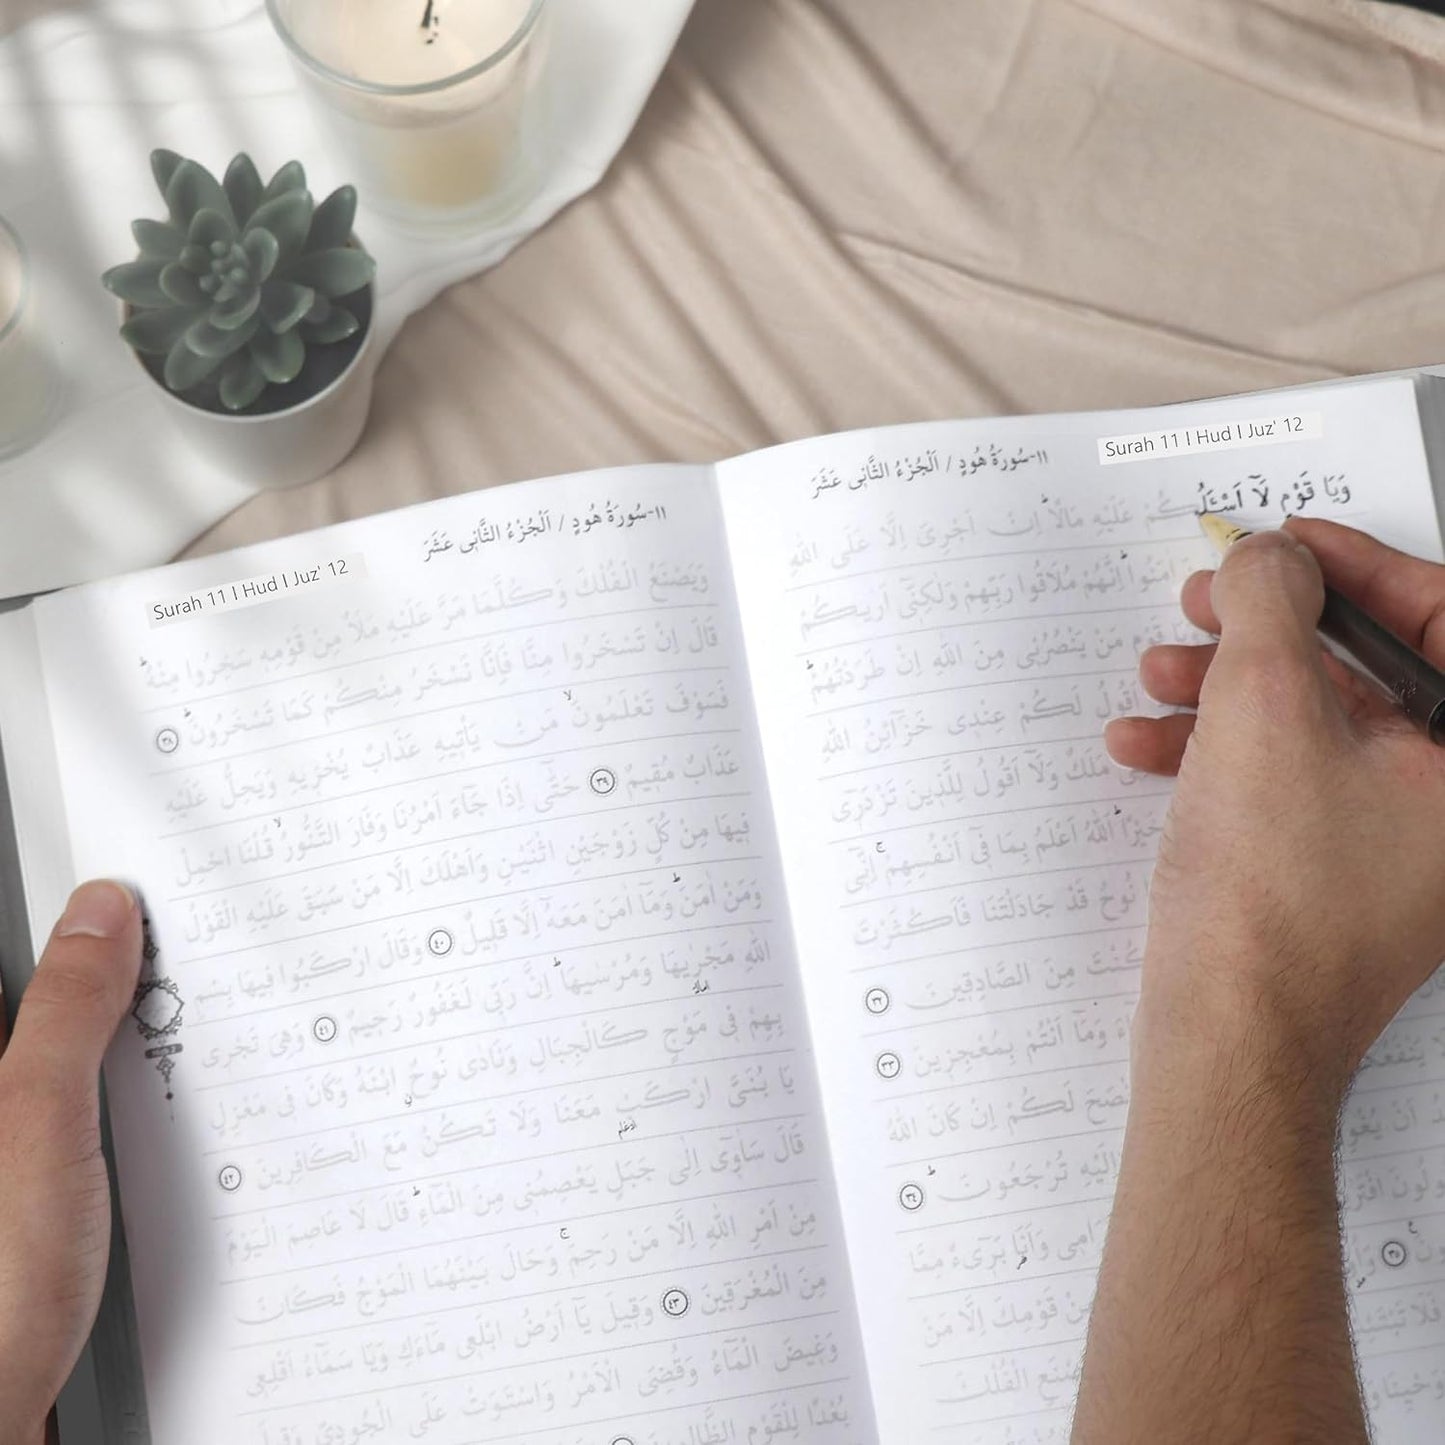 Surah 11 I Hud I Juz' 12
١١-سُورَةُ هُودٍ / اَلْجُزْءُ الثَّانِى عَشَرَ
وَيَا قَوْمِ لَٓا اَسْـَٔلُكُمْ عَلَيْهِ مَالًاۜ اِنْ اَجْرِىَ اِلَّا عَلَى اللّٰهِ
اٰمَنُواۜ اِنَّهُمْ مُلَاقُوا رَبِّهِمْ وَلٰكِنّٖٓى اَرٰيكُمْ
قَوْمِ مَنْ يَنْصُرُنٖى مِنَ اللّٰهِ اِنْ طَرَدْتُهُمْۜ
اَقُولُ لَكُمْ عِنْدٖى خَزَٓائِنُ اللّٰهِ
مَلَكٌ وَلَٓا اَقُولُ لِلَّذٖينَ تَزْدَرٖٓى
خَيْرًاۜ اَللّٰهُ اَعْلَمُ بِمَا فٖٓى اَنْفُسِهِمْۚ اِنّٖٓى
نُوحُ قَدْ جَادَلْتَنَا فَاَكْثَرْتَ
كُنْتَ مِنَ الصَّادِقٖينَ ٣٢
وَمَٓا اَنْتُمْ بِمُعْجِزٖينَ ٣٣
اَنْصَحَ لَكُمْ اِنْ كَانَ اللّٰهُ
اِلَيْهِ تُرْجَعُونَۜ ٣٤
وَاَنَا۬ بَرٖٓىءٌ مِمَّا
مِنْ قَوْمِكَ اِلَّا مَنْ
الْفُلْكَ
Surah 11 I Hud I Juz' 12
١١-سُورَةُ هُودٍ / اَلْجُزْءُ الثَّانِى عَشَرَ
وَيَصْنَعُ الْفُلْكَ وَكُلَّمَا مَرَّ عَلَيْهِ مَلَأٌ مِنْ قَوْمِهٖ سَخِرُوا مِنْهُۜ
قَالَ اِنْ تَسْخَرُوا مِنَّا فَاِنَّا نَسْخَرُ مِنْكُمْ كَمَا تَسْخَرُونَۜ ٣٨
فَسَوْفَ تَعْلَمُونَۙ مَنْ يَأْتٖيهِ عَذَابٌ يُخْزٖيهِ وَيَحِلُّ عَلَيْهِ
عَذَابٌ مُقٖيمٌ ٣٩ حَتّٰٓى اِذَا جَٓاءَ اَمْرُنَا وَفَارَ التَّنُّورُۙ قُلْنَا احْمِلْ
فٖيهَا مِنْ كُلٍّ زَوْجَيْنِ اثْنَيْنِ وَاَهْلَكَ اِلَّا مَنْ سَبَقَ عَلَيْهِ الْقَوْلُ
وَمَنْ اٰمَنَۜ وَمَٓا اٰمَنَ مَعَهُٓ اِلَّا قَلٖيلٌ ٤٠ وَقَالَ ارْكَبُوا فٖيهَا بِسْمِ
اللّٰهِ مَجْرٰۭۙيهَا وَمُرْسٰيهَاۜ اِنَّ رَبّٖى لَغَفُورٌ رَحٖيمٌ ٤١ وَهِىَ تَجْرٖى
بِهِمْ فٖى مَوْجٍ كَالْجِبَالِ وَنَادٰى نُوحٌۨ ابْنَهُ وَكَانَ فٖى مَعْزِلٍ
يَا بُنَىَّ ارْكَبْ مَعَنَا وَلَا تَكُنْ مَعَ الْكَافِرٖينَ ٤٢
قَالَ سَاٰوٖٓى اِلٰى جَبَلٍ يَعْصِمُنٖى مِنَ الْمَٓاءِۜ قَالَ لَا عَاصِمَ الْيَوْمَ
مِنْ اَمْرِ اللّٰهِ اِلَّا مَنْ رَحِمَۚ وَحَالَ بَيْنَهُمَا الْمَوْجُ فَكَانَ
مِنَ الْمُغْرَقٖينَ ٤٣ وَقٖيلَ يَٓا اَرْضُ ابْلَعٖى مَٓاءَكِ وَيَا سَمَٓاءُ اَقْلِعٖى
وَغٖيضَ الْمَٓاءُ وَقُضِىَ الْاَمْرُ وَاسْتَوَتْ عَلَى الْجُودِىِّ وَقٖيلَ
بُعْدًا لِلْقَوْمِ الظَّالِمٖينَ